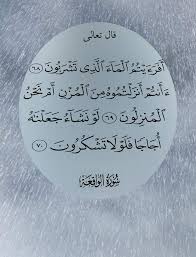 قال تعالى
أَفَرَءَيْتُمُ ٱلْمَآءَ ٱلَّذِى تَشْرَبُونَ ٦٨
ءَأَنتُمْ أَنزَلْتُمُوهُ مِنَ ٱلْمُزْنِ أَمْ نَحْنُ
ٱلْمُنزِلُونَ ٦٩ لَوْ نَشَآءُ جَعَلْنَٰهُ
أُجَاجًا فَلَوْلَا تَشْكُرُونَ ٧٠
سورة الواقعة